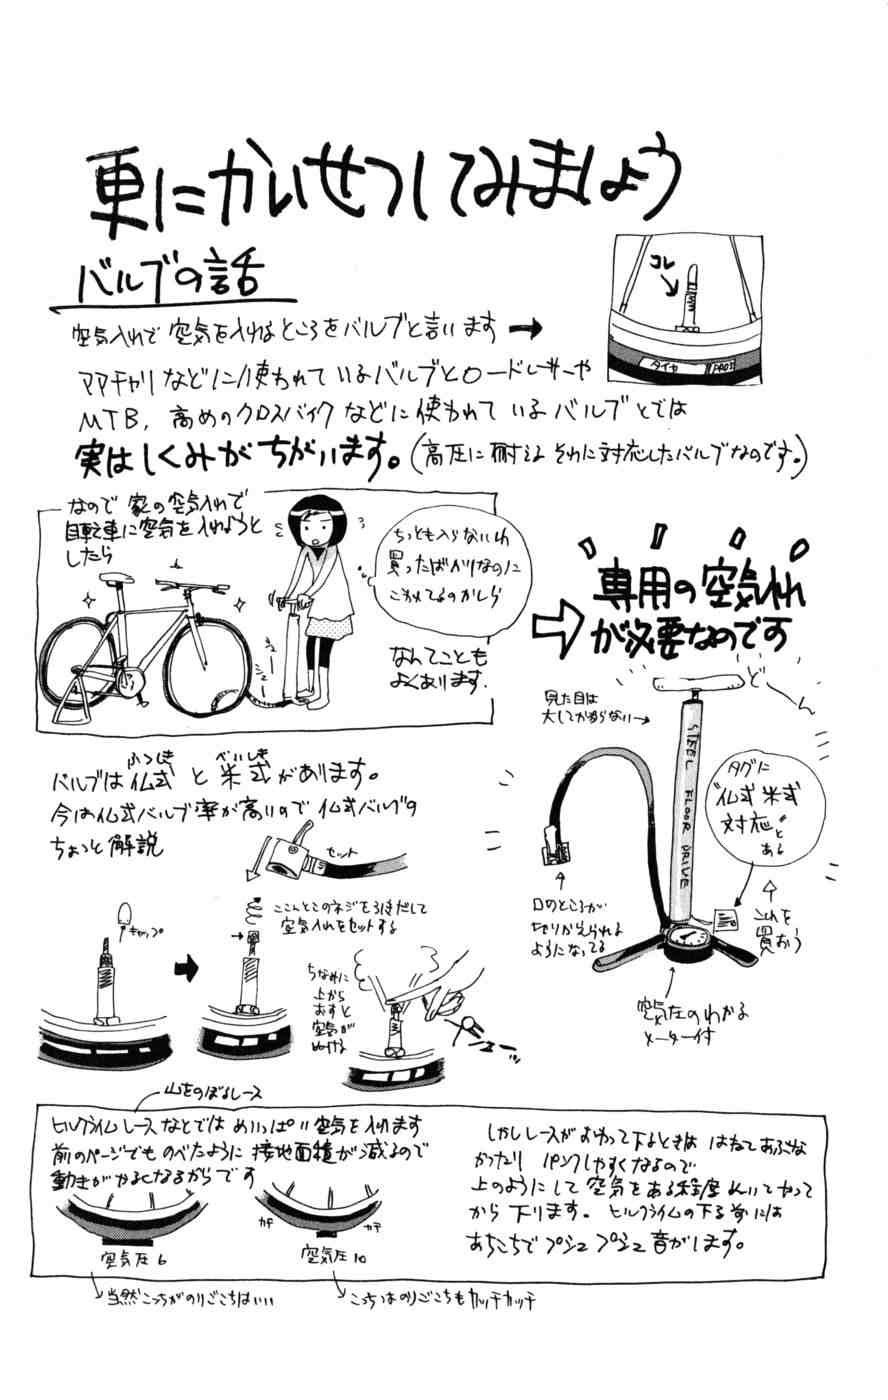 更にかいせつしてみましょう
バルブの話
空気入れで空気を入れるところをバルブと言います
コレ
タイヤ
ママチャリなどに使われているバルブとロードレーサーや
MTB,高めのクロスバイクなどに使われているバルブとでは
実はしくみがちがいます。(高圧に耐えるそれに対応したバルブなのです。)
なので家の空気入れで
自転車に空気を入れようと
したら
ちっとも入らないわ
買ったばかりなのに
こわれてるのかしら
シュー
シュー
なんてことも
よくあります。
専用の空気入れ
が必要なのです
見た目は
大してかわらない
どーん
STEEL FLOOR DRIVE
タグに
"仏式米式
対応"と
ある
これを
買おう
口のところが
切りかえられる
ようになってる
空気圧のわかる
メーター付
ふつしき
べいしき
バルブは仏式と米式があります。
今は仏式バルブ率が高いので仏式バルブの
ちょっと解説
セット
キャップ
ここんとこのネジをゆるめて
空気入れをセットする
ちなみに
上から
おすと
空気が
ぬける
山をのぼるレース
ヒルクライムレースなどではめいっぱい空気を入れます
前のページでものべたように接地面積が減るので
動きがかるくなるからです
空気圧6
カチ
カチ
空気圧10
当然こっちがのりごこちはいい
こっちはのりごこちもカッチカッチ
しかしレースがおわって下るときははねてあぶな
かったりパンクしやすくなるので
上のようにして空気をある程度ぬいてやって
から下ります。ヒルクライムの下る前には
あちこちでプシュプシュ音がします。